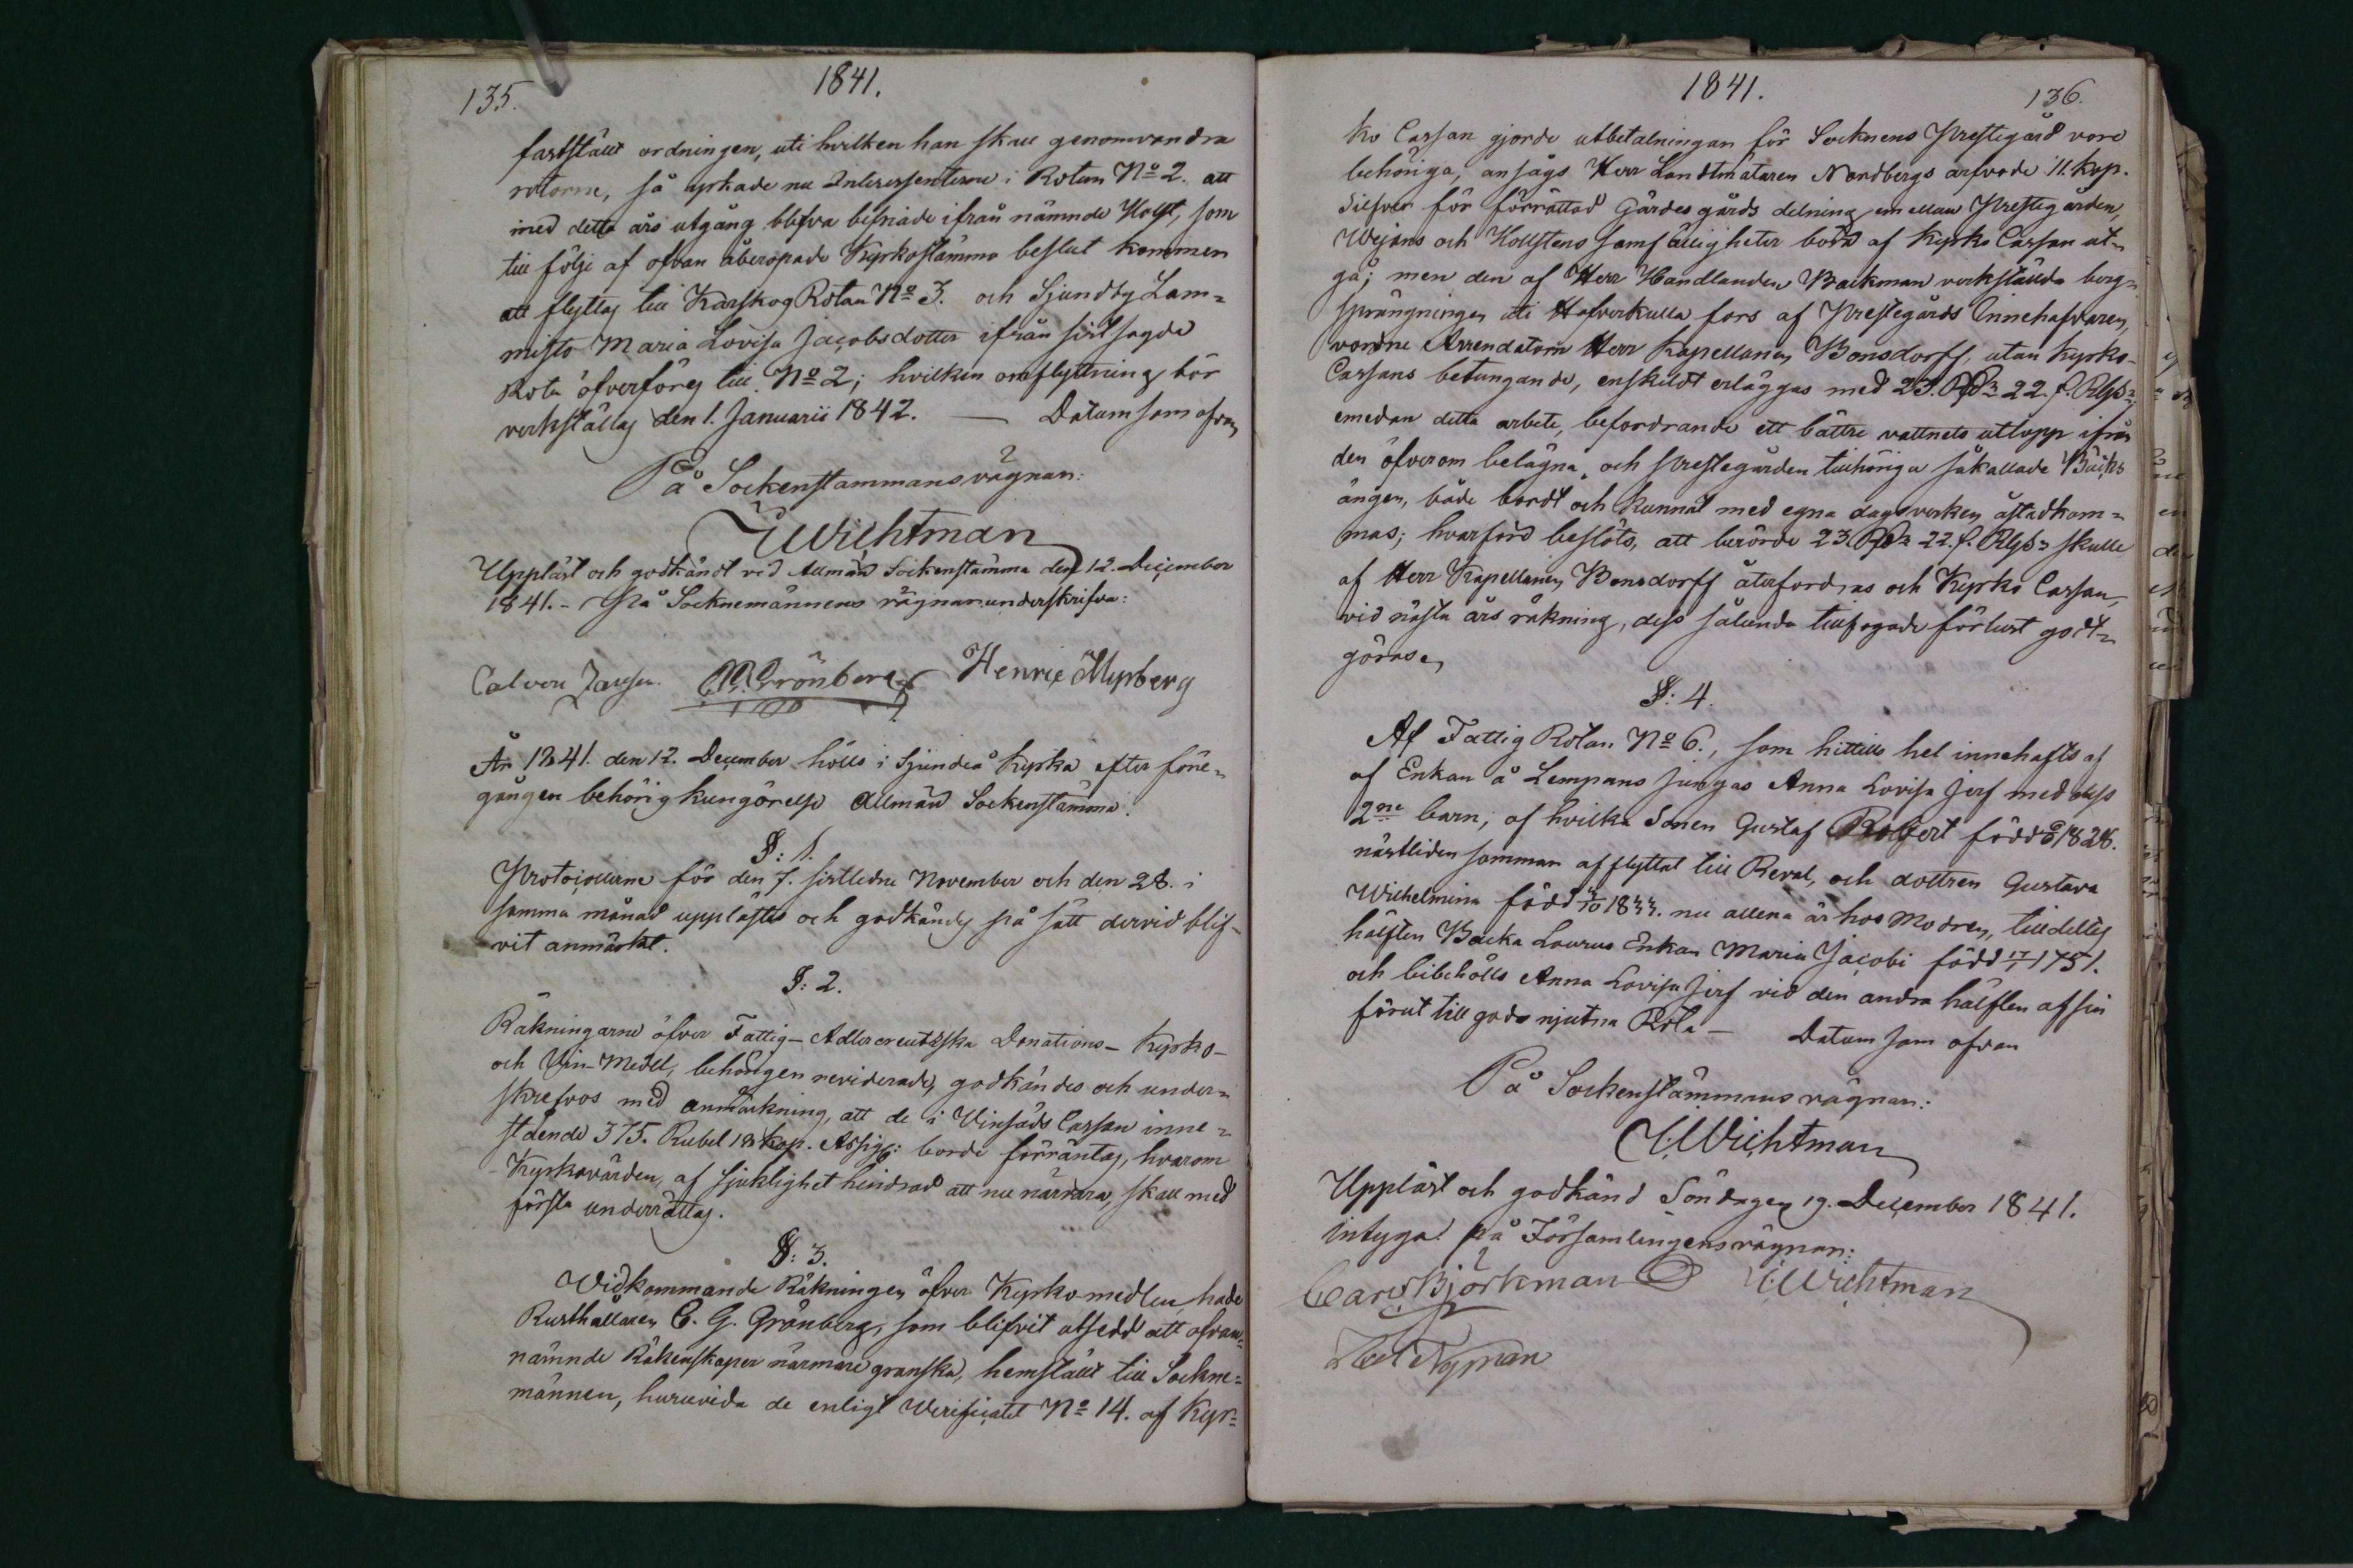 135.
1841.
fastställt ordningen, uti hvilken han skall genomvandra
rotorne, så yrkade nu Interessenterne i Rotan No 2. att
med detta års utgång blifva befriade ifrån nämnde Holst, som
till följe af ofvan åberopade Kyrkostämmo beslut kommer
att flyttas till Karskog Rotan No 3. och Sjundby Lam=
misto Maria Lovisa Jacobsdotter ifrån sistsagde
Rota öfverföres till No 2; hvilken omflyttning bör
verkställas den 1. Januarii 1842. — Datum som ofvan
På Sockenstämmans vägnar:
Wichtman
Uppläst och godkändt vid Allmän Sockenstämma den 12. December
1841. - På Socknemännens vägnar underskrifva:
Grönberg Henric Myrberg
År 1841. den 12. December hölls i Sjundeå Kyrka efter före=
gången behörig kungörelse Allmän Sockenstämma.
§: 1.
Protocollerne för den 7. sistledne November och den 28. i
samma månad upplästes och godkändes på sätt dervid blif=
vit anmärkt.
§: 2.
Räkningarne öfver Fattig- Adlercreutzska Donations- Kyrko-
och Vin-Medel, behörigen reviderade, godkändes och under=
skrefvos med anmärkning, att de i Vinsäds Cassan inne=
stående 375. Rubel 18 kop. Assign: borde förräntas, hvarom
Kyrkovärden, af sjuklighet hindrad att nu närvara, skall med
första underrättas.
§: 3.
Widkommande Räkningen öfver Kyrko-medlen, hade
Rusthållaren C. G. Grönberg, som blifvit utsedd att ofvan=
nämnde Räkenskaper närmare granska, hemställt till Sockne=
männen, huruvida de enligt Verificatet No 14. af Kyr=
1841.
136.
ko Cassan gjorde utbetalningar för Socknens Prestegård vore
behöriga; ansågs Herr Landtmätaren Nordbergs arfvode 11. kop.
Silfver för förrättad Gärdesgårds delning emellan Prestegården,
Wejans och Hollstens samfälligheter böra af Kyrko Cassan ut=
gå; men den af Herr Handlanden Backman verkställda berg=
sprängningen uti Hofverkulla fors af Prestegårds Innehafvaren,
vordne Arrendatorn Herr Kapellanen Bonsdorff, utan Kyrko-
Cassans betungande, enskildt erläggas med 23. 22. f.
emedan detta arbete, befordrande ett bättre vattnets utlopp ifrån
den öfverom belägna, och Prestegården tillhöriga såkallade Bäcks
ängen, både bordt och kunnat med egna dagsverken åstadkom=
mas; hvarföre beslöts, att berörde 23. 22. f. skulle
af Herr Kapellanen Bonsdorff återfordras och Kyrko Cassan,
vid nästa års räkning, dess sålunda tillfogade förlust godt=
göras.
§: 4.
Af Fattig Rotan No 6., som hittills hel innehafts af
af Enkan å Lempans Jungas Anna Lovisa Jerf med dess
2ne barn, af hvilka Sonen Gustaf Robert född 1828.
nästliden sommar afflyttat till Reval, och dottren Gustava
Wilhelmina född 1833. nu allena är hos Modren, tilldeltes
hälften Backa Laurus Enkan Maria Jacobi född 17/1 1751.
och bibehölls Anna Lovisa Jerf vid den andra hälften af sin
förut till godo njutna Rota — Datum som ofvan
På Sockenstämmans vägnar:
Wichtman
Uppläst och godkänd Söndagen 19. December 1841.
intygat på Församlingens vägnar:
Carl Björkman Wichtman
Nyman